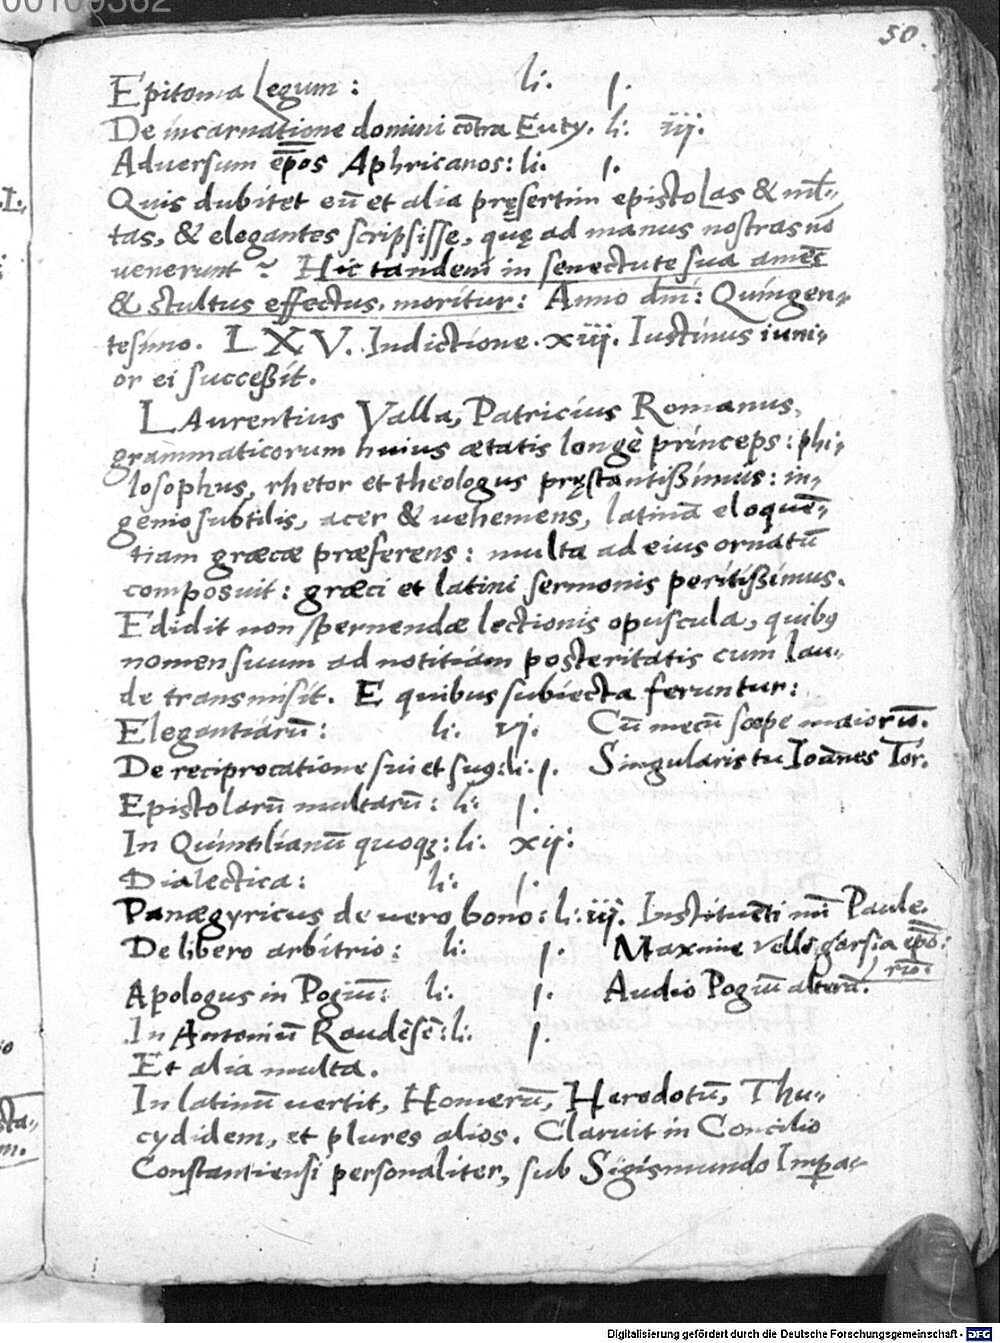 00109362
50.
Epitoma Legum: li. 1.
De incarnatione domini cōtra Euty. li. iij.
Adversum ēpos Aphricanos: li. 1.
Quis dubitet eū et alia pręsertim epistolas & ml̄-
tas, & elegantes scripsisse, quę ad manus nostras nō
uenerunt ~ Hic tandem in senectute sua amēs
& stultus effectus, moritur: Anno dn̄i: Quingen-
tesimo. LXV. Indictione. xiij. Iustinus iuni-
or ei succeßit.
LAurentius Valla, Patricius Romanus,
grammaticorum huius ætatis longè princeps: phi-
losophus, rhetor et theologus pręstantißimus: in-
genio subtilis, acer & uehemens, latinā eloquē-
tiam græcæ præferens: multa ad eius ornatū
composuit: græci et latini sermonis peritißimus.
Edidit non spernendæ lectionis opuscula, quibꝰ
nomen suum ad notitiam posteritatis cum lau-
de transmisit. E quibus subiecta feruntur:
Elegantiarū: li. vi. Cū mecū sæpe maiorū.
De reciprocatione sui et suꝰ: li. 1. Singularis tu Ioānes Tor.
Epistolarū multarū: li. 1
In Quintilianū quoqꝫ: li. xij:
Dialectica: li. 1
Panægyricus de uero bono: li: iij. Instituēti mī Paule.
De libero arbitrio: li. 1. Maxime velle garsia ēpō:
Apologus in Pogiū: li. 1. Audio Pogiū alterā. riō:
In Antoniū Raudēsē: li. 1.
Et alia multa.
In latinū uertit, Homerū, Herodotū, Thu-
cydidem, et plures alios. Claruit in Concilio
Constantiensi personaliter, sub Sigismundo Impa-
Digitalisierung gefördert durch die Deutsche Forschungsgemeinschaft - DFG